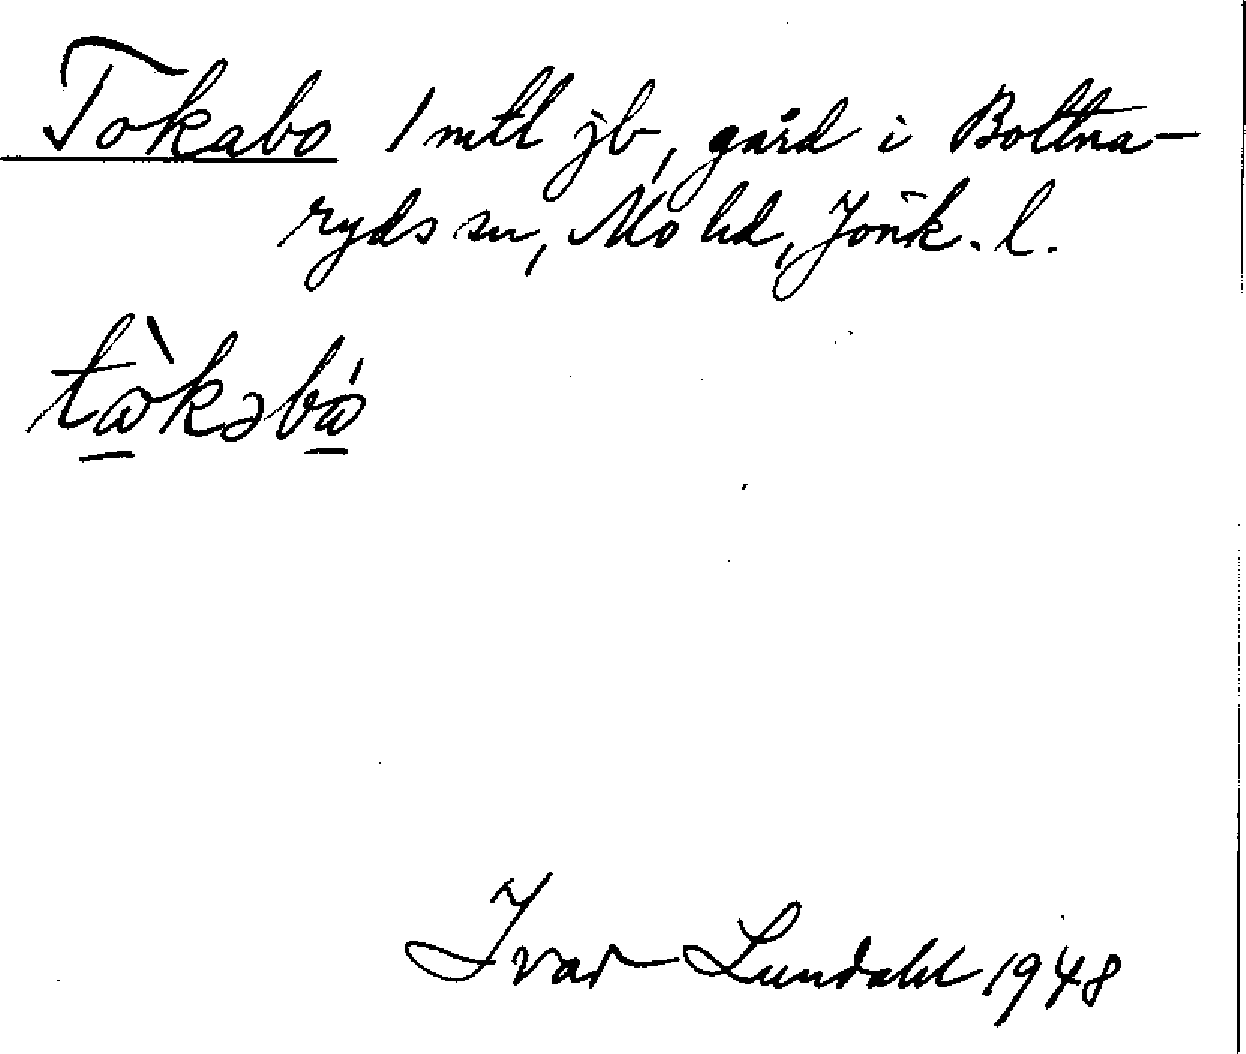 Tokabo 1 mtl jb, gård i Bottna-
ryds sn, Mo hd, Jönk. l.
tὼkəbώ
Ivar Lundahl 1948